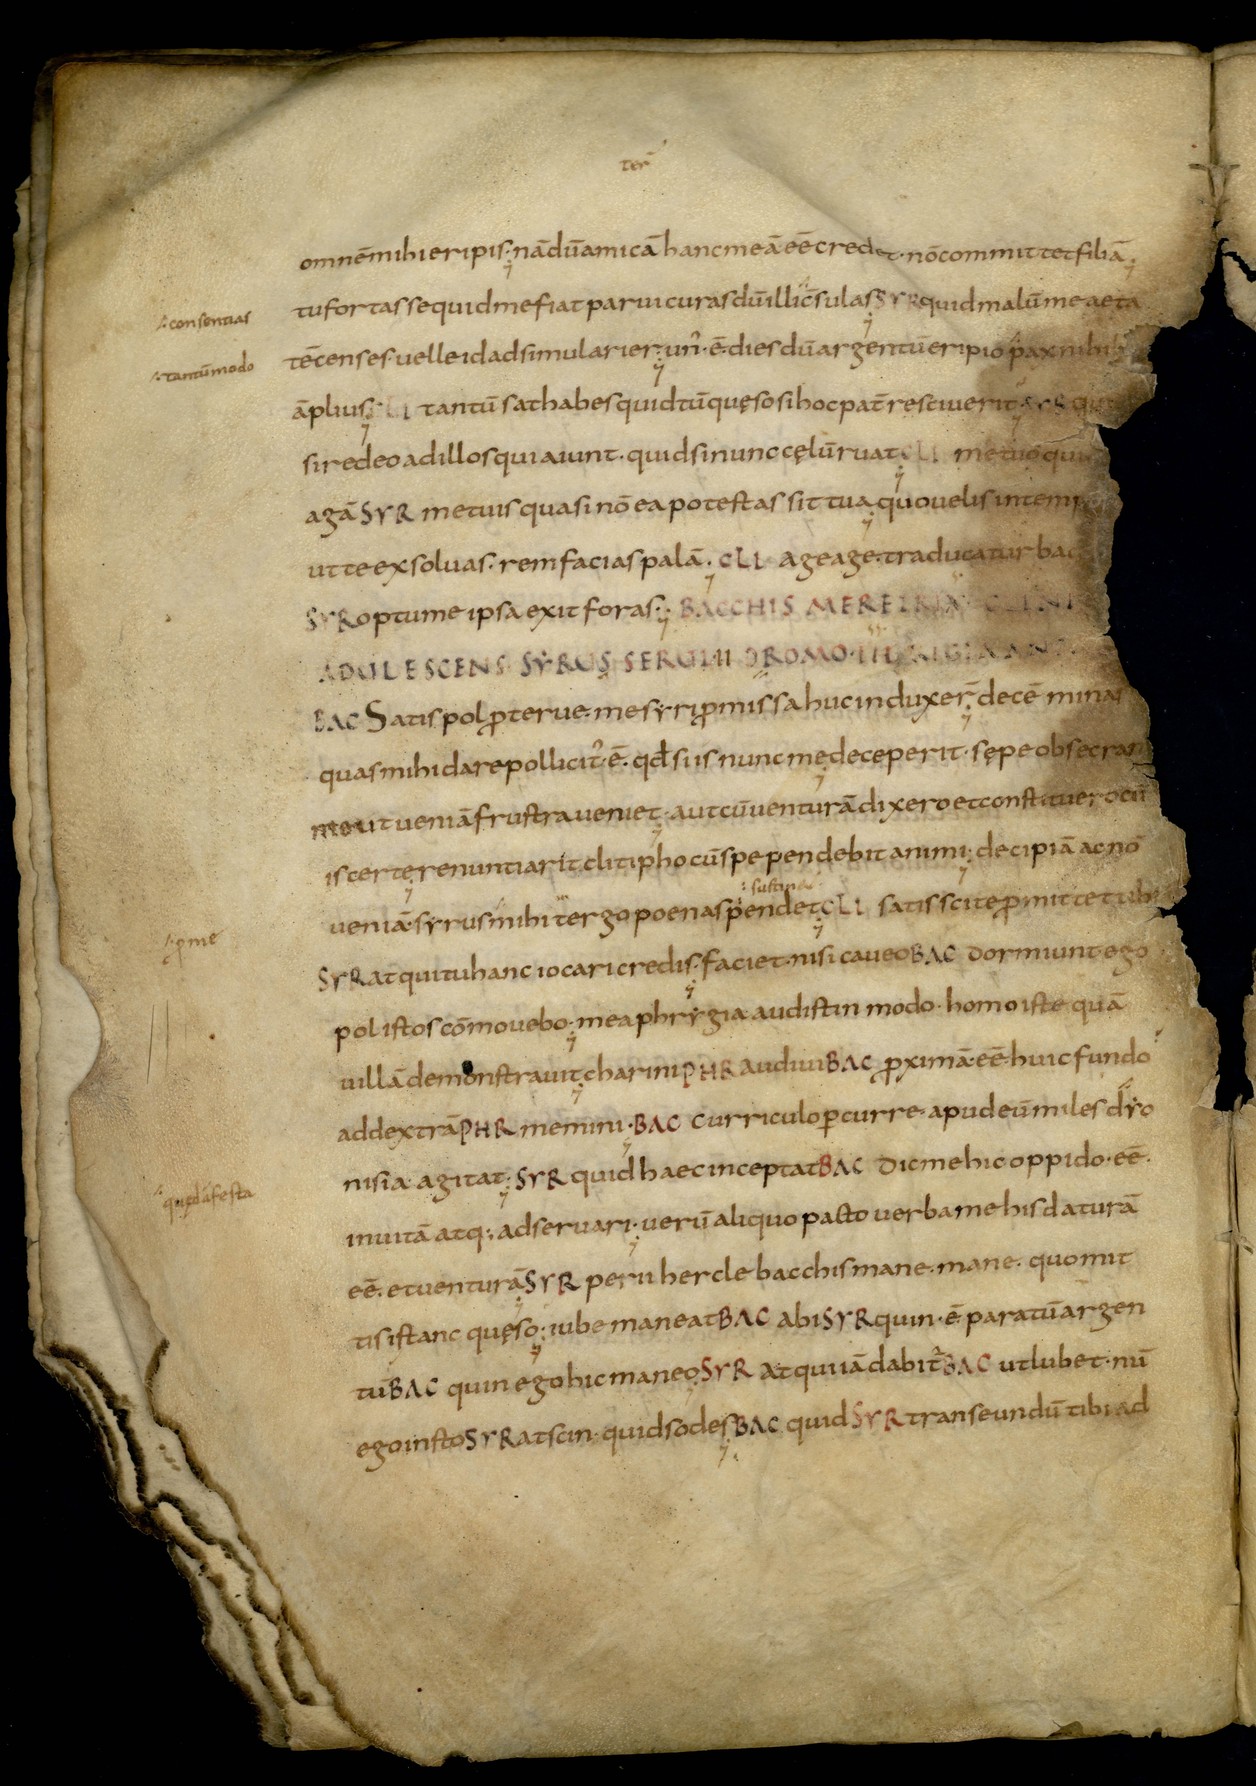 ter̄
omnēmihieripis· nādūamicāhancmeāeēcredet·nōcommittetfiliā
tufortassequidmefiatparuicurasdūilliċsulas SYRquidmalūmeaeta
tēcenses·uelleidadsimularier·un᾽·ē·diesdūargentūeripio paxnihil
āplius CLI tantūsathabesquidtūquęsosihocpat̄resciuerit SYR
siredeoadillosquiaiunt·quidsinunccęlūruat CLI metuoqui
agā SYR metuisquasinōeapotestassittua quouelisintemp
utteexsoluas·remfaciaspalā· CLI ageage·traducaturbac
SYRoptumeipsaexitforas· BACCHIS MERETRIX CLINI
ADULESCENS SYRUS SERUI·II DROMO
BAC Satispol ꝓterue·mesyripromissahucinduxer̄·decē mina
quasmihidarepollicit᾽·ē·qđsiisnuncmędeceperit·sępeobsecran
meutueniāfrustraueniet·autcūuenturādixeroetconstituerocū
iscerterenuntiaritclitiphocūspependebitanimi·decipiāacnō
ueniā·syrusmihitergopoenaspendet CLI satissciteꝓmittettibi
⁖sustin
SYRatquituhanciocaricredis·faciet·nisicaueoBAC dormiuntego
⁖ꝓme
polistoscōmouebo·meaphrygia·audistinmodo·homoistequā
uillādemonstrauit·charini PHR audiuiBAC ꝓximāeē·huicfundo
addextrāPHR memini·BAC curriculoꝑcurre·apudeūmilesdyo
nisia·agitat· SYR quidhaecinceptatBAC dicmehicoppido·eē·
⁖quędāfesta
inuitāatq·adseruari·uerūaliquopactouerbamehisdaturā
eē·etuenturāSYR periihercle bacchismane·mane· quomit
tisistancquęso·iubemaneatBAC abiSYRquin·ē·paratūargen
tūBAC quinegohicmaneoSYR atquiiādabit᾽BAC utlubet·nū
egoinstoSYRatscin·quidsodesBAC quidSYRtranseundūtibiad
⁖consentias
⁖tantūmodo